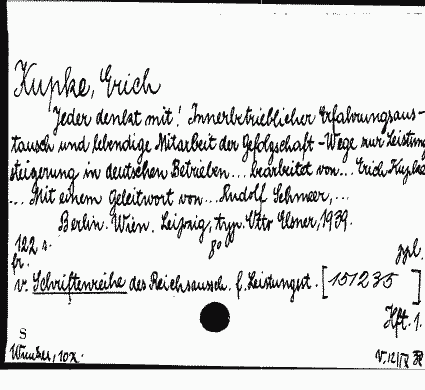 Kupke, Erich
Jeder denkt mit! Innerbetrieblicher Erfahrungsaus-
tausch und lebendige Mitarbeit der Gefolgschaft - Wege zur Leistung
steigerung in deutschen Betrieben... bearbeitet von... Erich Kupke
... Mit einem Geleitwort von... Rudolf Schmeer,...
Berlin. Wien. Leipzig, typ. Otto Elsner, 1939.
122 s. 8°
fr. ppl.
v. Schriftenreihe des Reichsaussch. f. Leistungst. [151235]
Hft. 1.
S
102. V.12